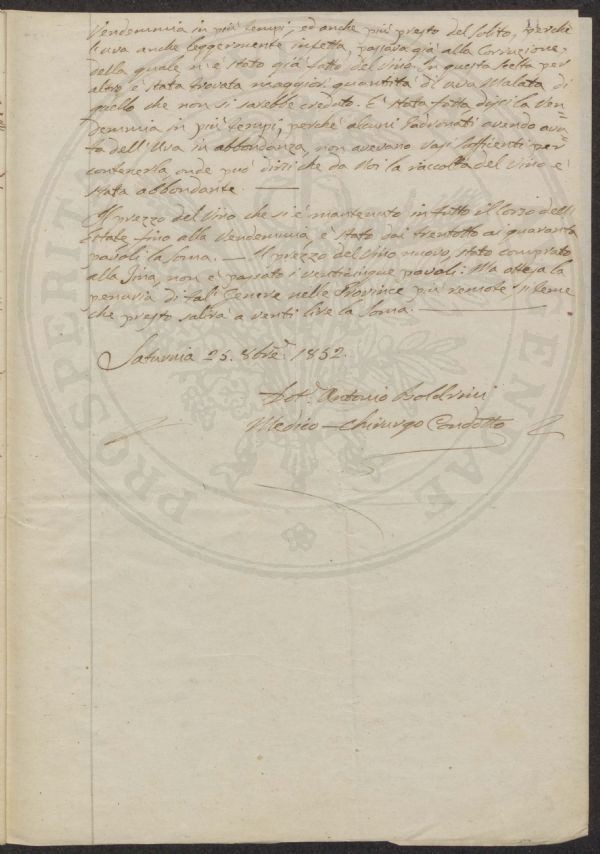 Vendemmia in più tempi, ed anche più presto del Solito, perchè
l'uva anche leggermente infetta, passava già alla Corruzione,
della quale n'è stato già fatto del vino. In questa scelta per
altro è stata trovata maggior quantità di uva Malata di
quello che non si sarebbe creduto. E' stata fatta dissi la Ven=
demmia in più tempi, perchè alcuni Padronati avendo avu=
ta dell'Uva in abbondanza, non avevano vasi sofficienti per
contenerla, onde può dirsi che da Noi la raccolta del Vino è
stata abbondante. —
Il prezzo del Vino che si è mantenuto in tutto il Corso dell'
Estate fino alla Vendemmia è stato dai trentotto ai quaranta
pavoli la Soma. — Il prezzo del Vino nuovo, stato comprato
alla Tina, non è passato i venticinque pavoli: Ma attesa la
penuria di tal Genere nelle Province più remote si teme
che presto salirà a venti lire la Soma. —
Saturnia 25. 8bre 1852.
Dot. Antonio Boldrini
Medico-Chirurgo Condotto
PROSPERITA
ENDAE